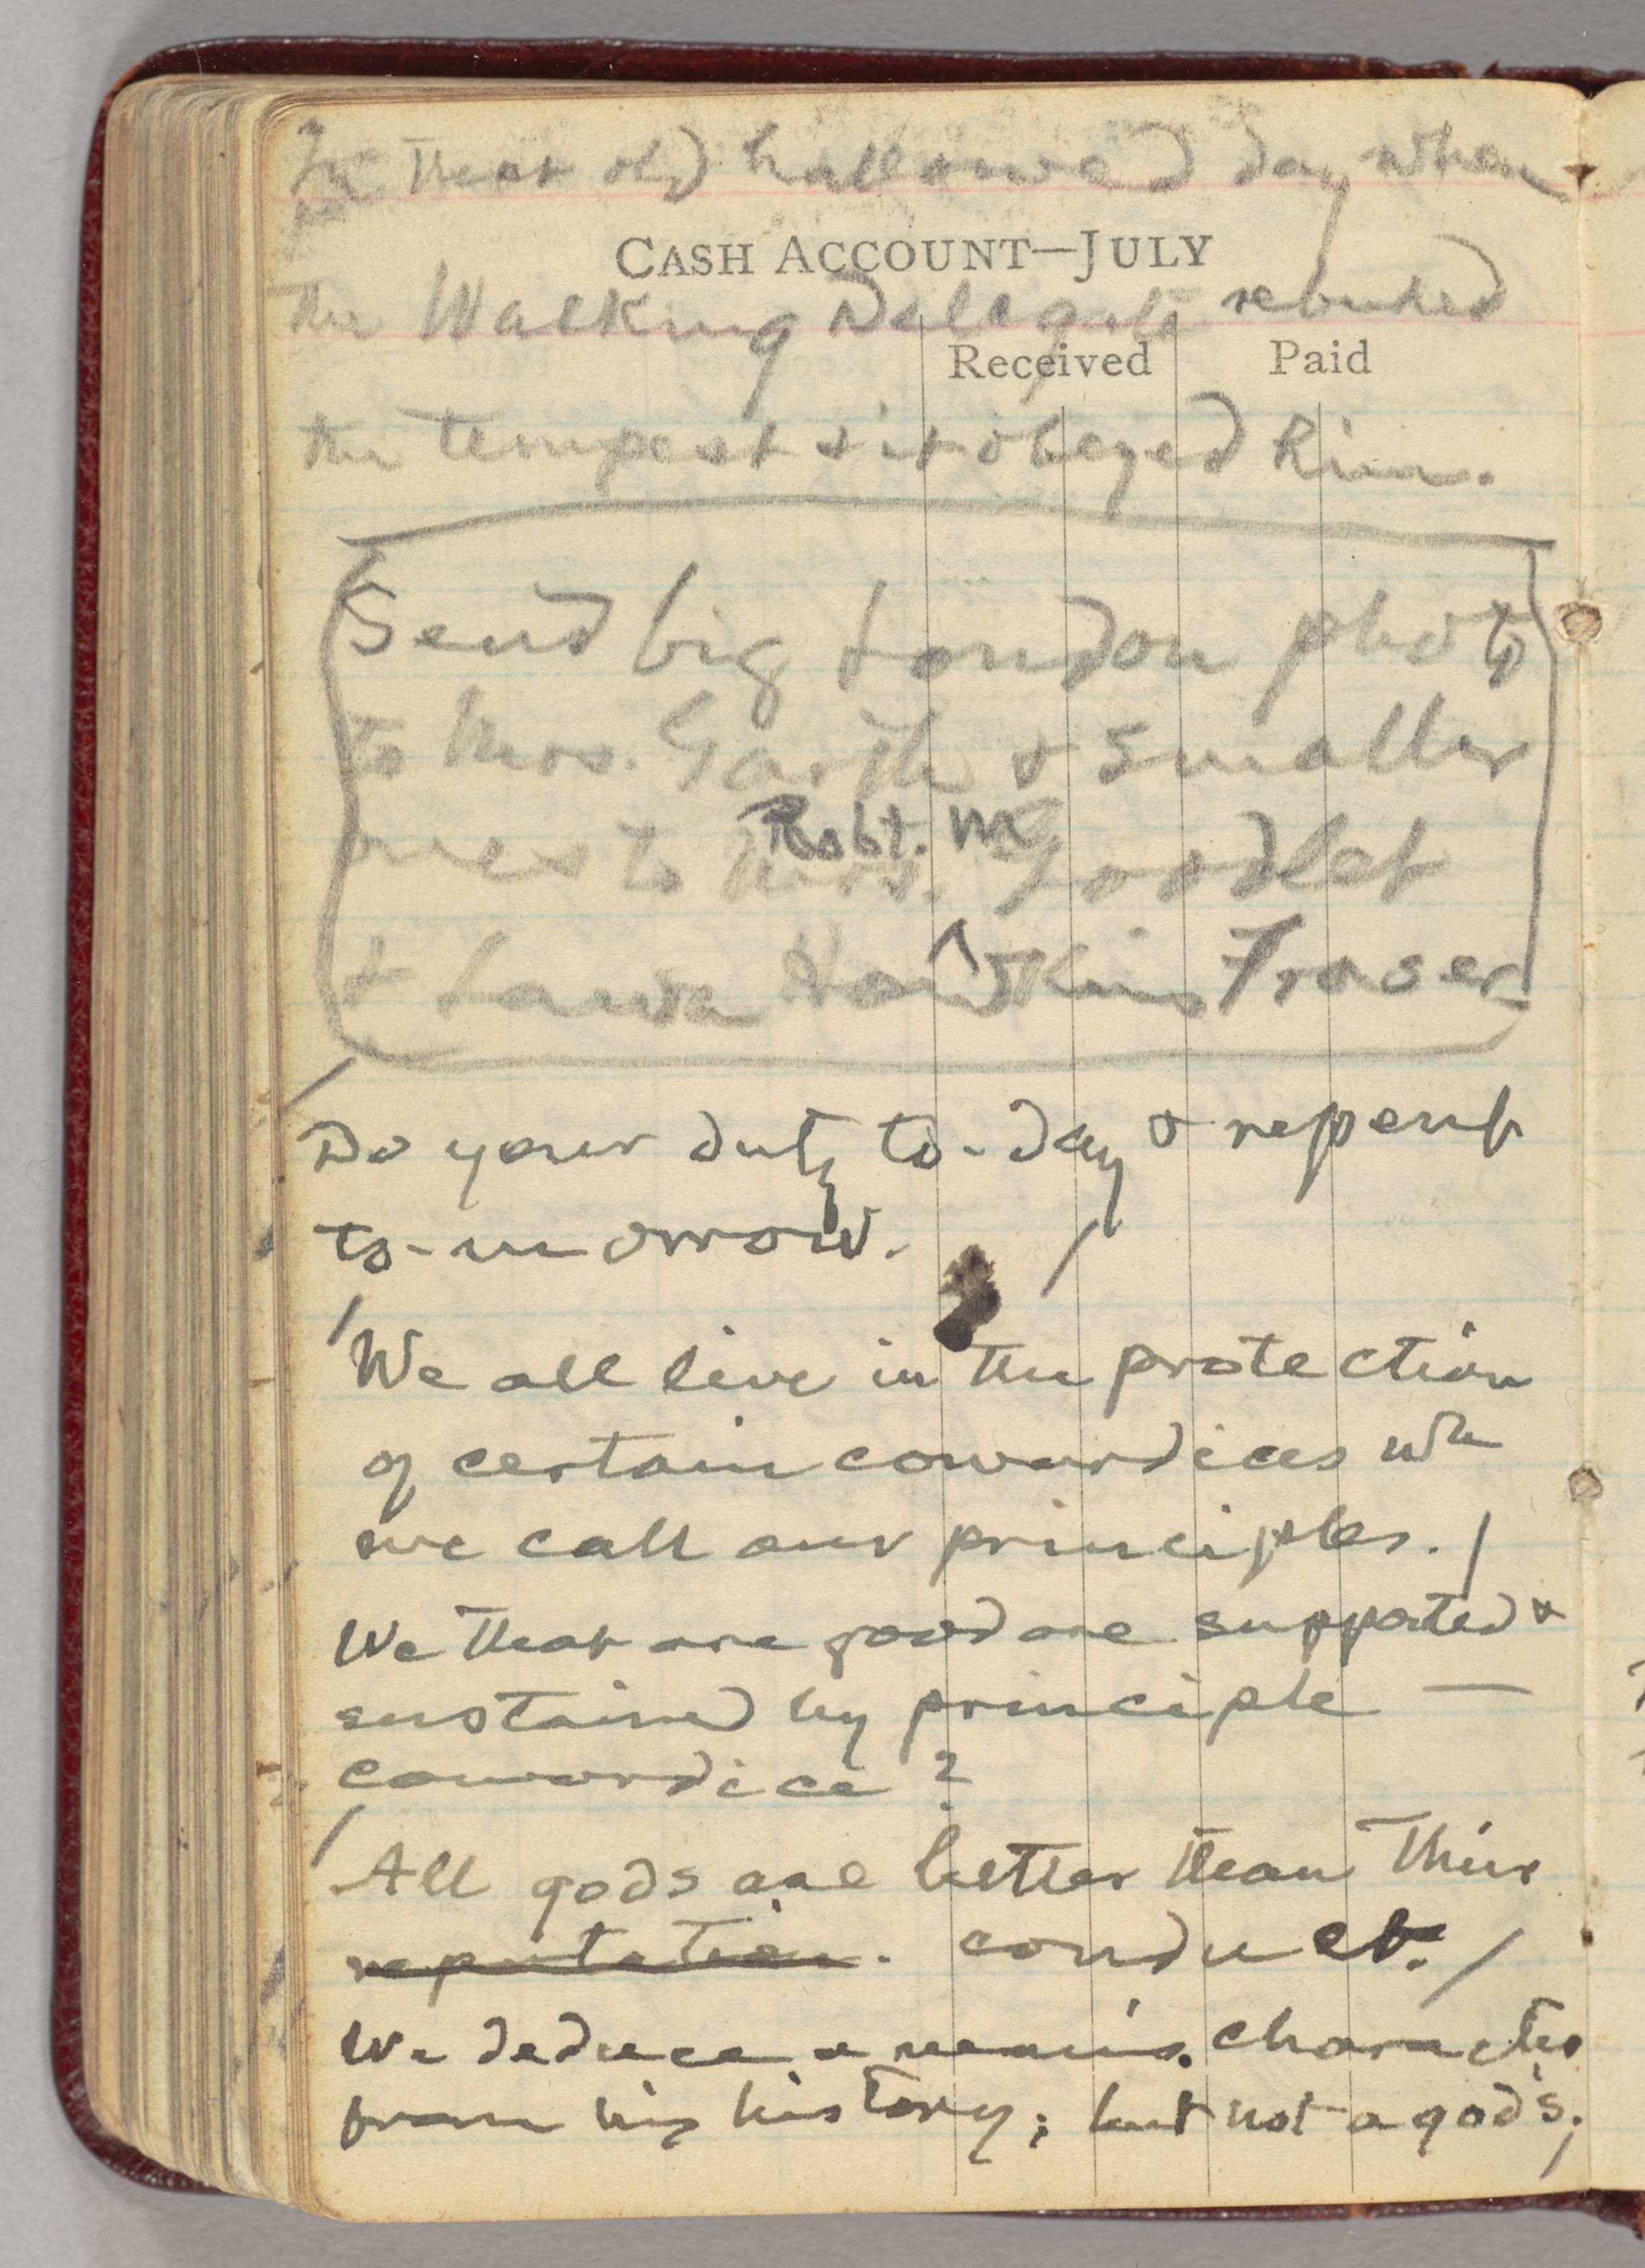 In that old hallowed day when
CASH ACCOUNT—JULY
the Walking Delegate rebuked
Received Paid
the tempest & it obeyed him.
Send big London photo
to Mrs. Garth & smaller
Robt. M
ones to Mrs. Goodlet
& Laura Hawkins Frazer
Do your duty to-day & repent
to-morrow.
We all live in the protection
of certain cowardices wh
we call our principles.
We that are good are supported &
sustained by principle —
cowardice?
All gods are better than their
reputation. conduct.
We deduce a man's character
from his history; but not a god's.